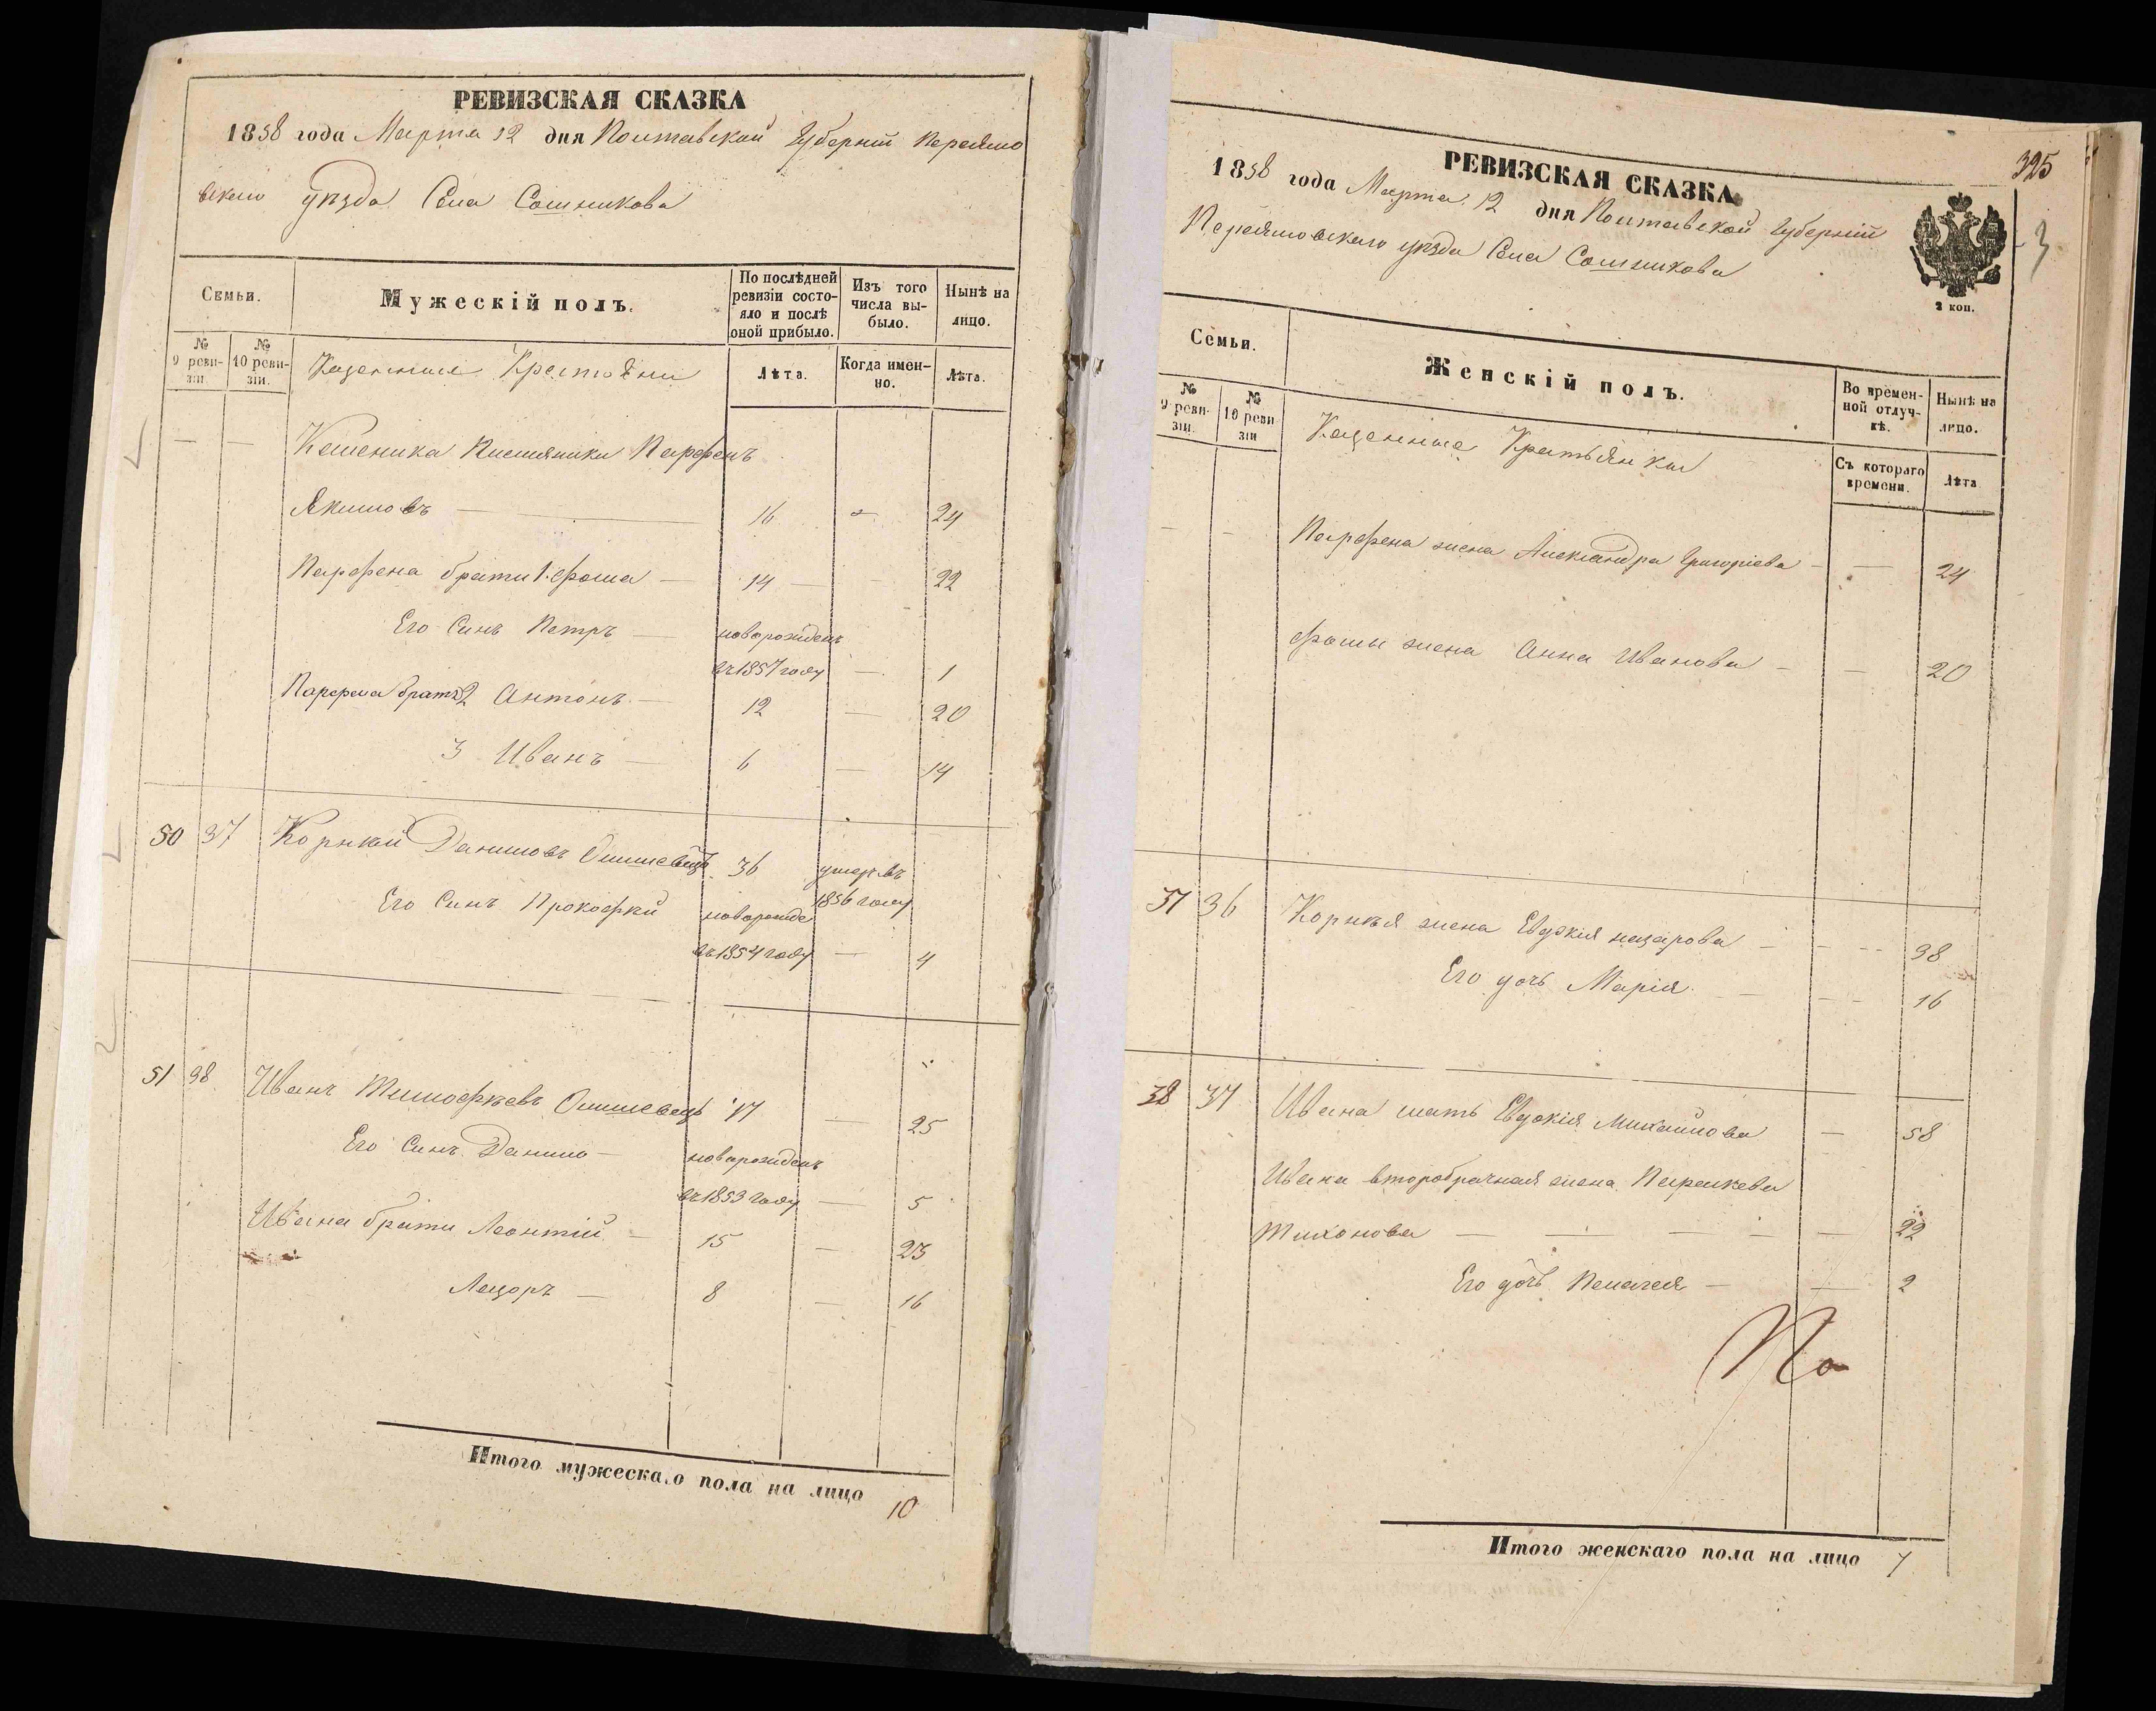 РЕВИЗСКАЯ СКАЗКА
1858 года Марта 12 дня Полтавской Губерніи Переясло
вскаго уѣзда Села Сошникова
Семьи.
Мужескій полъ.
По послѣдней ревизіи состояло и послѣ оной прибыло.
Изъ того числа выбыло.
Нынѣ на лицо.
№ 9 ревизіи.
№ 10 ревизіи.
Казенные Крестьяни
Лѣта.
Когда именно.
Лѣта.
— — Парфенъ
Якимовъ — 16 — 24
Парфена брати 1. Фома — 14 — 22
Его Синъ Петръ — новорожденъ
въ 1857 году — 1
Парфена братъ 2 Антонъ — 12 — 20
3 Иванъ — 6 — 14
50 37 Корнѣй Даниловъ 36 умеръ въ
1856 году
Его Синъ Прокофій новорожде
въ 1854 году — 4
51 38 Иванъ Тимофѣевъ 17 — 25
Его Синъ Данило — новорожденъ
въ 1853 году — 5
Ивана брати Леонтій — 15 — 23
Лазоръ — 8 — 16
Итого мужескаго пола на лицо 10
325
РЕВИЗСКАЯ СКАЗКА
1858 года Марта 12 дня Полтавской Губерніи
Переясловскаго уѣзда Села Сошникова
3
2 коп.
Семьи.
Женскій полъ.
Во временной отлучкѣ.
Нынѣ на лицо.
№ 9 ревизіи.
№ 10 ревизіи
Казенные Кратьянки
Съ котораго времени.
Лѣта
— — Парфена жена Александра Григоріева — — 24
Фомы жена Анна Иванова — — 20
37 36 Корнѣя жена Евдокія Назарова — — 38
Его дочь Марія — — 16
38 37 Ивана мать Евдокія Михайлова — 58
Ивана второбрачная жена Параскева
Тихонова — — — — — 22
Его дочь Пелагея — — 2
По
Итого женскаго пола на лицо 7